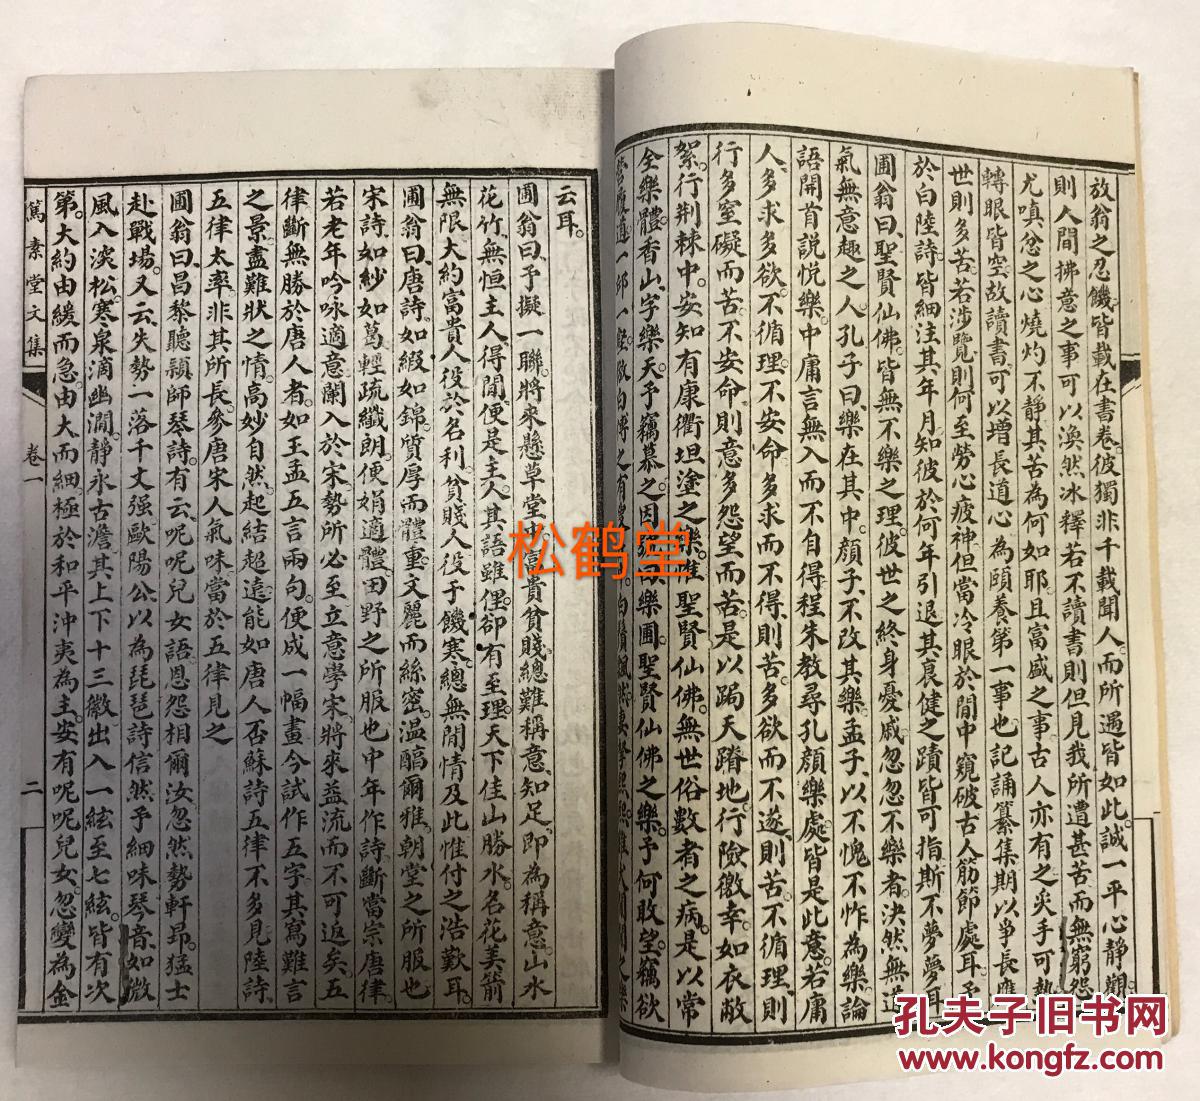 放翁之忍饑皆載在書卷彼獨非千載聞人而所遇皆如此誠一平心靜觀
則人間拂意之事可以渙然冰釋若不讀書則但見我所遭甚苦而無窮怨
尤嗔忿之心燒灼不靜其苦為何如耶且富盛之事古人亦有之炙手可熱
轉眼皆空故讀書可以增長道心為頤養第一事也記誦纂集期以爭長應
世則多苦若涉覽則何至勞心疲神但當冷眼於閒中窺破古人筋節處耳予
於白陸詩皆細注其年月知彼於何年引退其衰健之蹟皆可指斯不夢夢耳
圃翁曰聖賢仙佛皆無不樂之理彼世之終身憂戚忽忽不樂者決然無道
氣無意趣之人孔子曰樂在其中顏子不改其樂孟子以不愧不怍為樂論
語開首說悅樂中庸言無入而不自得程朱教尋孔顏樂處皆是此意若庸
人多求多欲不循理不安命多求而不得則苦多欲而不遂則苦不循理則
行多窒礙而苦不安命則意多怨望而苦是以跼天蹐地行險徼幸如衣敝
絮行荆棘中安知有康衢坦塗之樂惟聖賢仙佛無世俗數者之病是以常
全樂體香山字樂天予竊慕之因號曰樂圃聖賢仙佛之樂予何敢望竊欲
云耳
圃翁曰予擬一聯將來懸草堂中富貴貧賤總難稱意知足即為稱意山水
花竹無恒主人得閒便是主人其語雖俚卻有至理天下佳山勝水名花美箭
無限大約富貴人役於名利貧賤人役于饑寒總無閒情及此惟付之浩歎耳
圃翁曰唐詩如緞如錦質厚而體重文麗而絲密溫醇爾雅朝堂之所服也
宋詩如紗如葛輕疏纖朗便娟適體田野之所服也中年作詩斷當宗唐律
若老年吟咏適意闌入於宋勢所必至立意學宋將來益流而不可返矣五
律斷無勝於唐人者如王孟五言兩句便成一幅畫今試作五字其寫難言
之景盡難狀之情高妙自然起結超遠能如唐人否蘇詩五律不多見陸詩
五律太率非其所長參唐宋人氣味當於五律見之
圃翁曰昌黎聽穎師琴詩有云呢呢兒女語恩怨相爾汝忽然勢軒昂猛士
赴戰場又云失勢一落千丈强歐陽公以為琵琶詩信然予細味琴音如微
風入淡松寒泉滴幽澗靜永古澹其上下十三徽出入一絃至七絃皆有次
第大約由緩而急由大而細極於和平沖夷為主安有呢呢兒女忽變為金
篤素堂文集
卷一
二
松鹤堂
孔夫子旧书网
www.kongfz.com